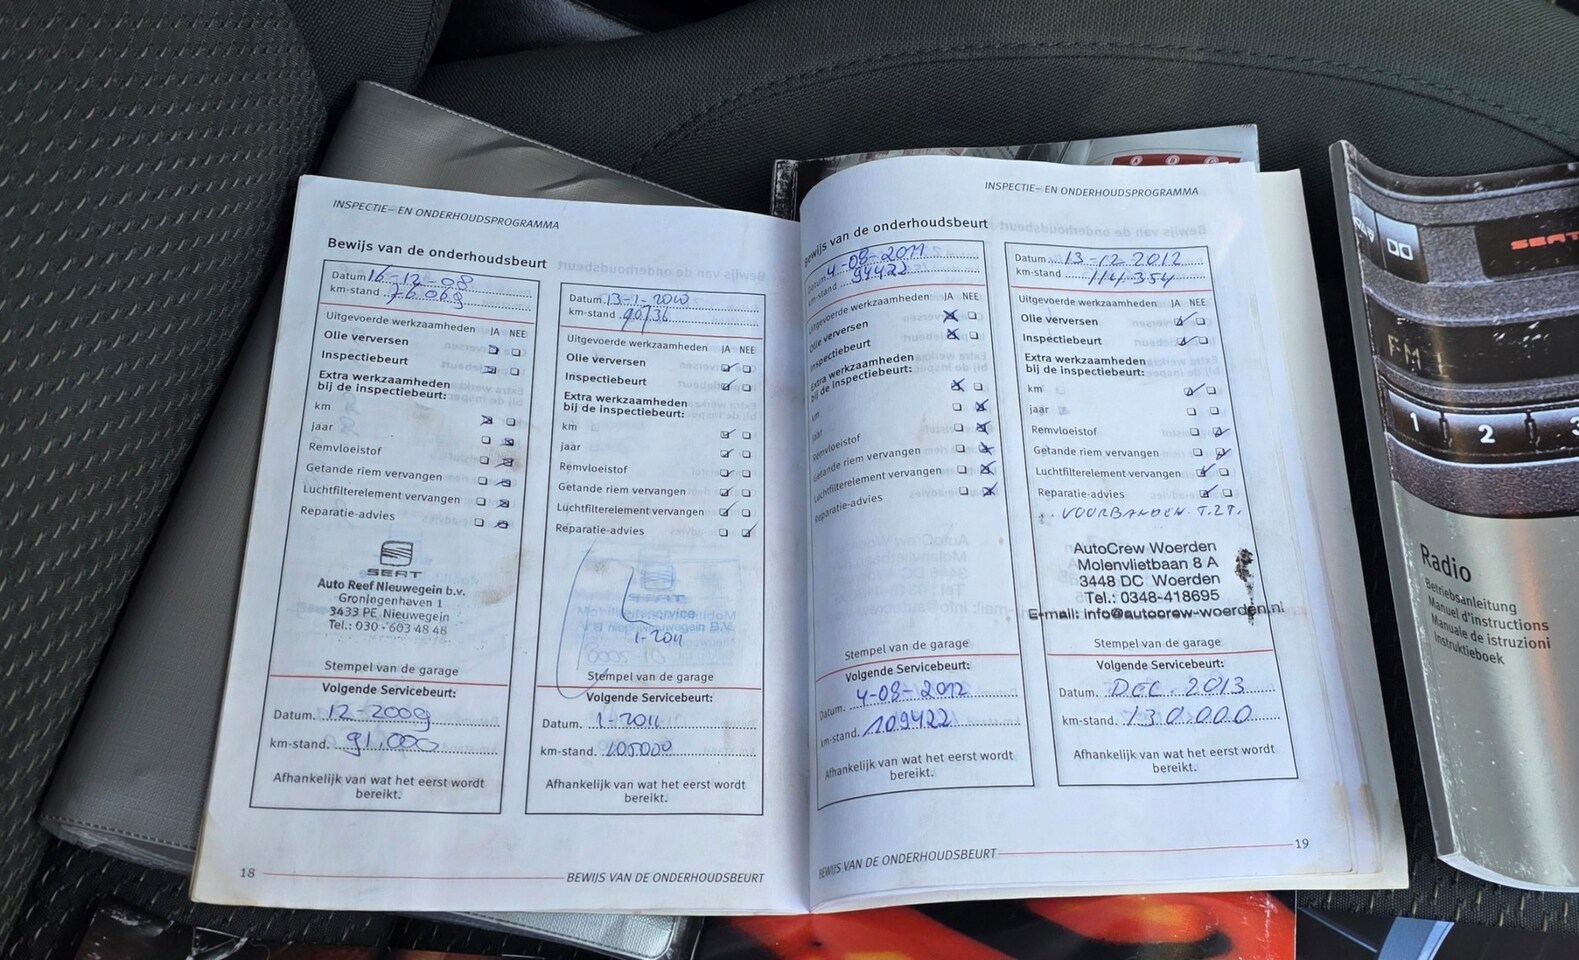 INSPECTIE- EN ONDERHOUDSPROGRAMMA
Bewijs van de onderhoudsbeurt
Datum 16-12-08
km-stand 76069
Uitgevoerde werkzaamheden JA NEE
Olie verversen
Inspectiebeurt
Extra werkzaamheden
bij de inspectiebeurt:
km
jaar
Remvloeistof
Getande riem vervangen
Luchtfilterelement vervangen
Reparatie-advies
SEAT
Auto Reef Nieuwegein b.v.
Groningenhaven 1
3433 PE Nieuwegein
Tel.: 030 - 603 48 48
Stempel van de garage
Volgende Servicebeurt:
Datum. 12-2009
km-stand. 91.000
Afhankelijk van wat het eerst wordt
bereikt.
Datum. 13-1-2010
km-stand 90736
Uitgevoerde werkzaamheden JA NEE
Olie verversen
Inspectiebeurt
Extra werkzaamheden
bij de inspectiebeurt:
km
jaar
Remvloeistof
Getande riem vervangen
Luchtfilterelement vervangen
Reparatie-advies
1-2011
Stempel van de garage
Volgende Servicebeurt:
Datum. 1-2011
km-stand. 105000
Afhankelijk van wat het eerst wordt
bereikt.
18
BEWIJS VAN DE ONDERHOUDSBEURT
INSPECTIE- EN ONDERHOUDSPROGRAMMA
Bewijs van de onderhoudsbeurt
Datum 4-08-2011
km-stand 94422
Uitgevoerde werkzaamheden JA NEE
Olie verversen
Inspectiebeurt
Extra werkzaamheden
bij de inspectiebeurt:
km
jaar
Remvloeistof
Getande riem vervangen
Luchtfilterelement vervangen
Reparatie-advies
Stempel van de garage
Volgende Servicebeurt:
Datum. 4-08-2012
km-stand. 109422
Afhankelijk van wat het eerst wordt
bereikt.
Datum 13-12-2012
km-stand 114354
Uitgevoerde werkzaamheden JA NEE
Olie verversen
Inspectiebeurt
Extra werkzaamheden
bij de inspectiebeurt:
km
jaar
Remvloeistof
Getande riem vervangen
Luchtfilterelement vervangen
Reparatie-advies
VOORBANDEN T.Z.T.
AutoCrew Woerden
Molenvlietbaan 8 A
3448 DC Woerden
Tel.: 0348-418695
E-mail: info@autocrew-woerden.nl
Stempel van de garage
Volgende Servicebeurt:
Datum. DEC. 2013
km-stand. 130.000
Afhankelijk van wat het eerst wordt
bereikt.
BEWIJS VAN DE ONDERHOUDSBEURT
19
SEAT
FM
1 2 3
Radio
Betriebsanleitung
Manuel d'instructions
Manuale de istruzioni
Instruktieboek